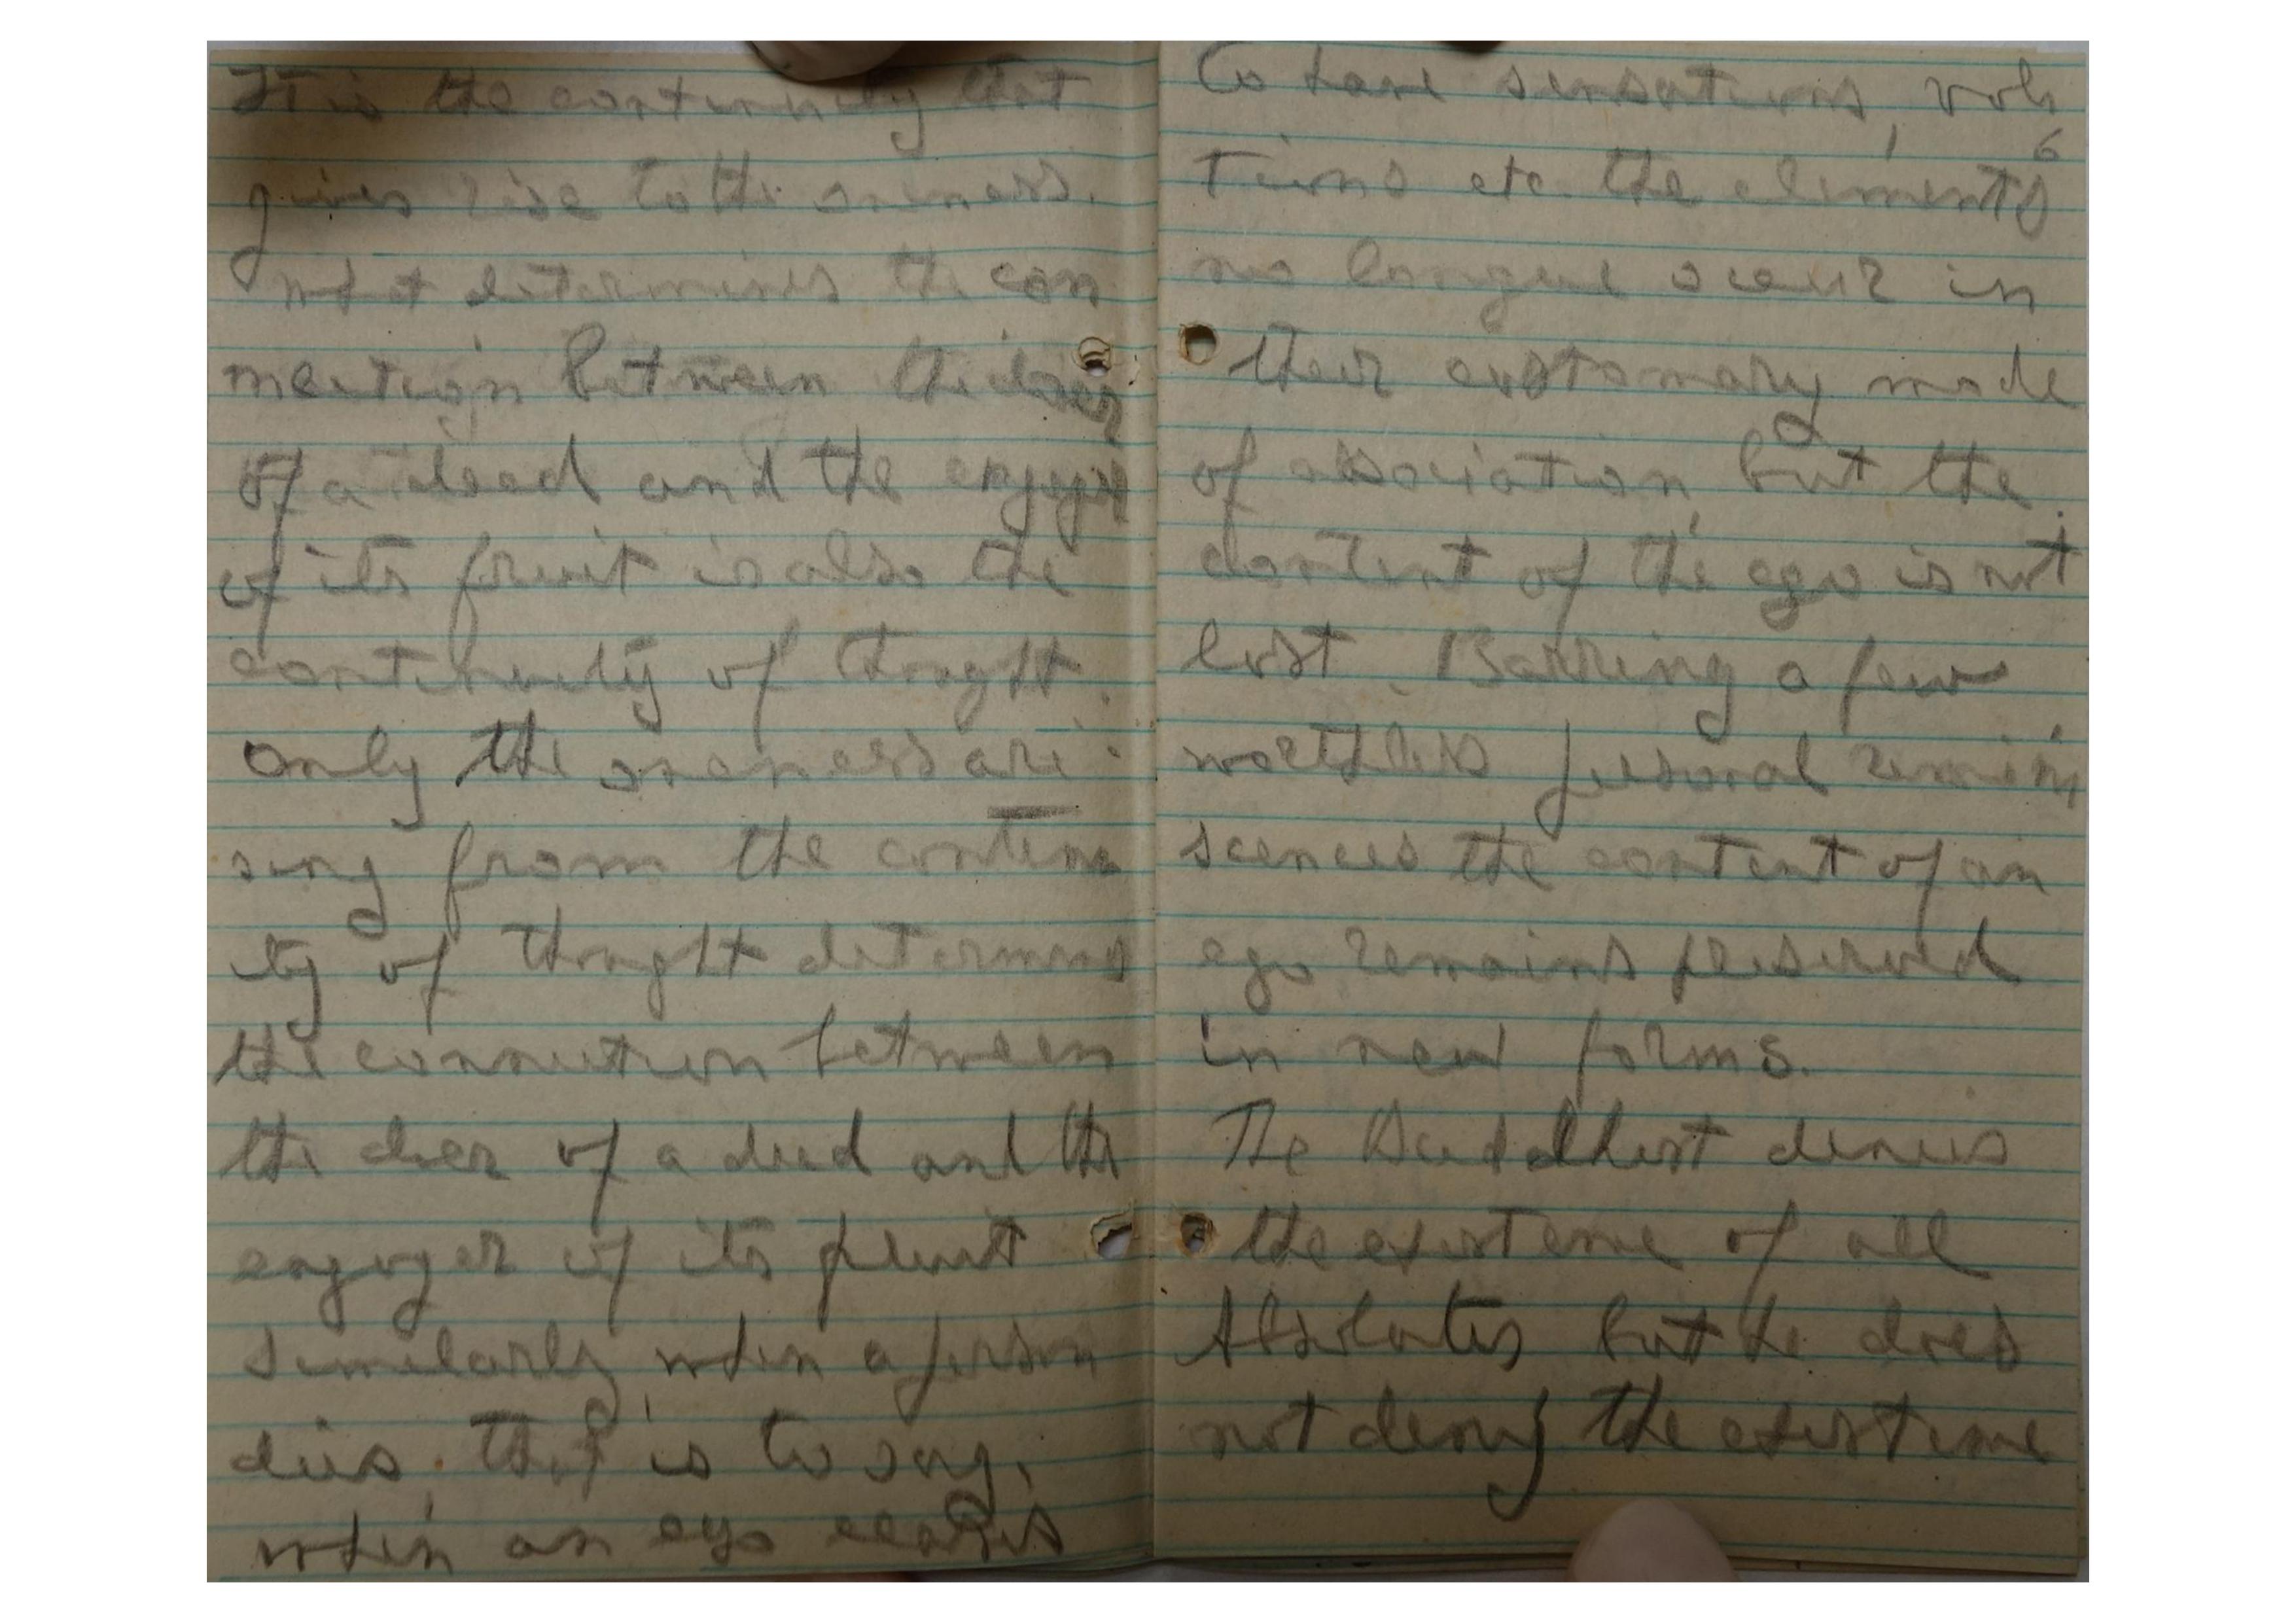 It is the continuity that
gives rise to the oneness.
What determines the con
nection between the doer
of a deed and the enjoyer
of its fruit is also the
continuity of thought.
Only the oneness ari
sing from the continu
ity of thought determines
the connection between
the doer of a deed and the
enjoyer of its fruit
Similarly, when a person
dies, that is to say,
when an ego ceases
to have sensations, voli
6
tions etc. the elements
no longer occur in
their customary mode
of association, but the
content of the ego is not
lost. Barring a few
worthless personal remini
scences the content of an
ego remains preserved
in new forms.
The Buddhist denies
the existence of all
Absolutes but he does
not deny the existence